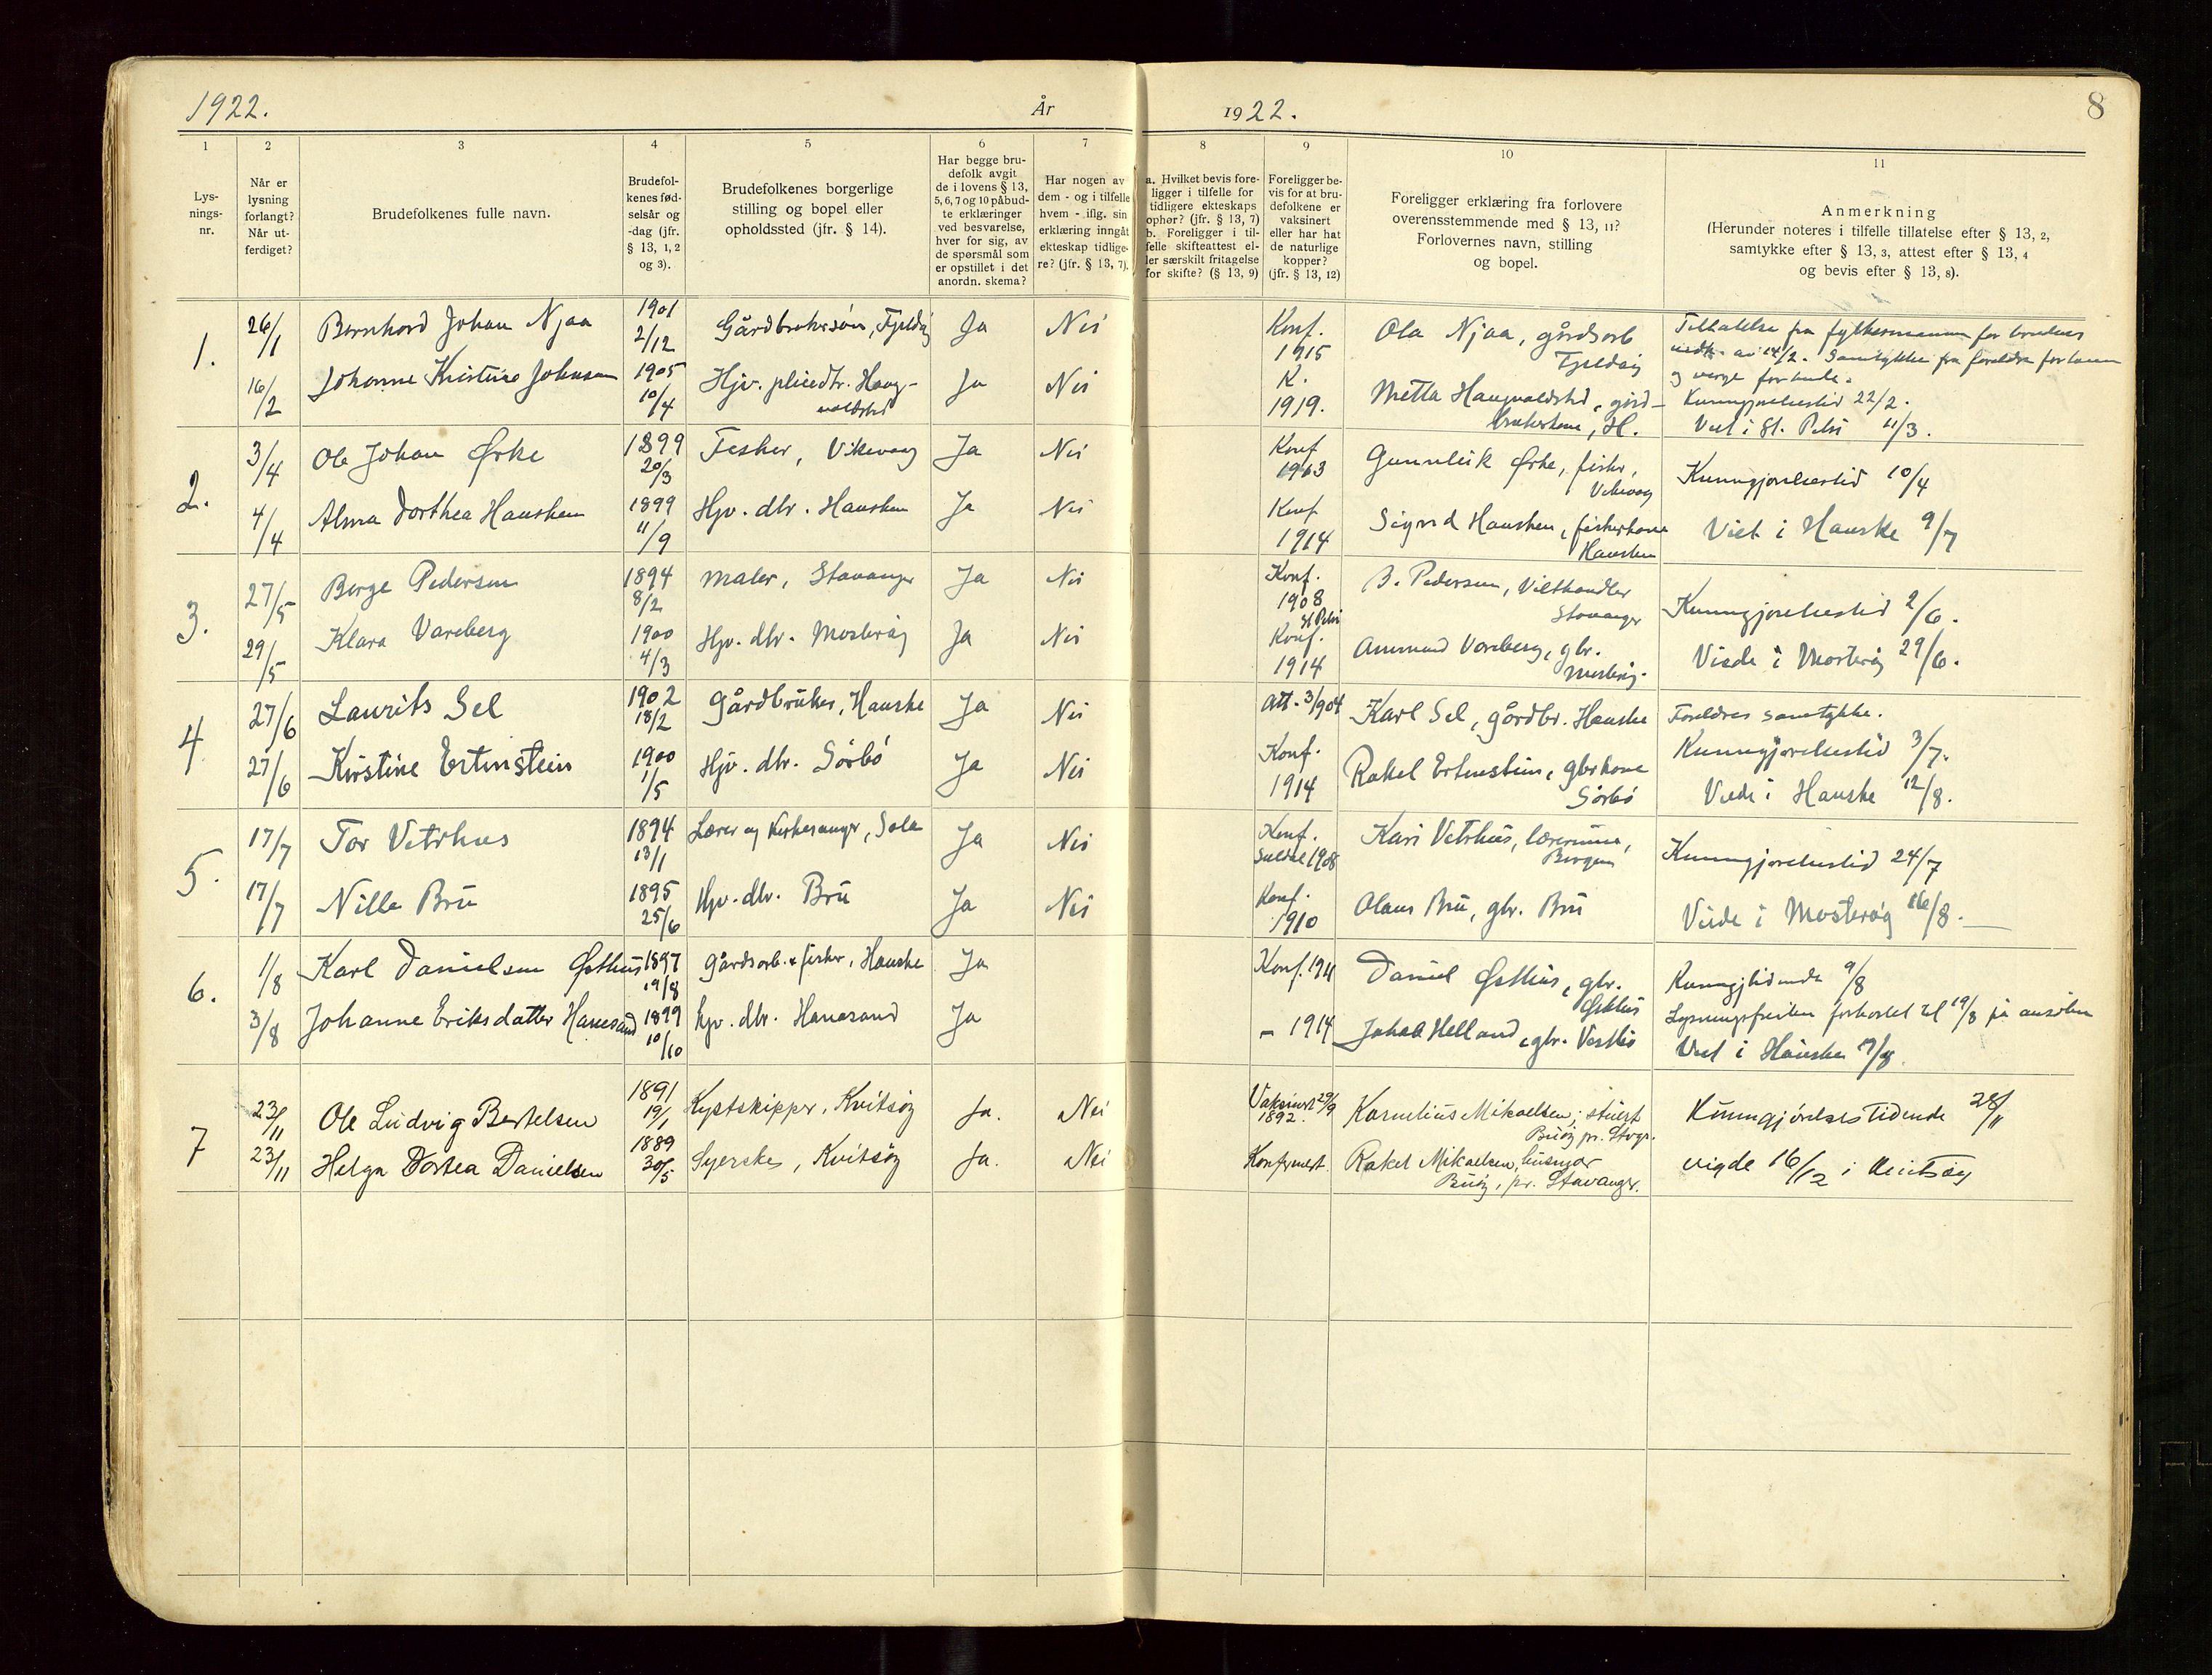 1922.
År
1922.
8
1
Lys-
nings-
nr.
2
Når er
lysning
forlangt?
Når ut-
ferdiget?
3
Brudefolkenes fulle navn.
4
Brudefol-
kenes fød-
selsår og
-dag (jfr.
§ 13, 1, 2
og 3).
5
Brudefolkenes borgerlige
stilling og bopel eller
opholdssted (jfr. § 14).
6
Har begge bru-
defolk avgit
de i lovens § 13,
5, 6, 7 og 10 påbud-
te erklæringer
ved besvarelse,
hver for sig, av
de spørsmål som
er opstillet i det
anordn. skema?
7
Har nogen av
dem - og i tilfelle
hvem - iflg. sin
erklæring inngåt
ekteskap tidlige-
re? (jfr. § 13, 7).
8
a. Hvilket bevis fore-
ligger i tilfelle for
tidligere ekteskaps
ophør? (jfr. § 13, 7)
b. Foreligger i til-
felle skifteattest el-
ler særskilt fritagelse
for skifte? (§ 13, 9)
9
Foreligger be-
vis for at bru-
defolkene er
vaksinert
eller har hat
de naturlige
kopper?
(jfr. § 13, 12)
10
Foreligger erklæring fra forlovere
overensstemmende med § 13, 11?
Forlovernes navn, stilling
og bopel.
11
Anmerkning
(Herunder noteres i tilfelle tillatelse efter § 13, 2,
samtykke efter § 13, 3, attest efter § 13, 4
og bevis efter § 13, 8).
1.
26/1
Bernhard Johan Njaa
1901
2/12
Gårdbrukersøn, Fjeldøy
Ja
Nei
Konf.
1915
Ola Njaa, gårdsarb
Fjeldøy
Tillatelse fra fylkesmannen for brudens
vedk. av 14/2. Samtykke fra foreldre for brudgom
og verge for brude.
16/2
Johanne Kristine Johnsen
1905
10/4
Hjv. pliedtr. Haug-
valdstad
Ja
Nei
K.
1919.
Metta Haugvaldstad, gård-
brukerkone, H.
Kunngjørelsestid 22/2.
Viet i St. Petri 11/3.
2.
3/4
Ole Johan Ørke
1899
20/3
Fisker, Vikevaag
Ja
Nei
Konf
1913
Gunnleik Ørke, fisker,
Vikevaag
Kunngjørelsestid 10/4
4/4
Alma Dorthea Hausken
1899
11/9
Hjv. dtr. Hausken
Ja
Nei
Konf
1914
Sigurd Hausken, fiskerkone
Hausken
Viet i Hauske 9/7
3.
27/5
Berge Pedersen
1894
8/2
Maler, Stavanger
Ja
Nei
Konf.
1908
St. Petri
B. Pedersen, Vilthandler
Stavanger
Kunngjørelsestid 2/6.
29/5
Klara Vareberg
1900
4/3
Hjv. dtr. Mosterøy
Ja
Nei
Konf.
1914
Ammund Vareberg, gbr.
Mosterøy.
Viede i Mosterøy 29/6.
4
27/6
Laurits Sel
1902
18/2
Gårdbruker, Hauske
Ja
Nei
Att. 3/9 04
Karl Sel, gårdbr. Hauske
Foreldres samtykke.
Kunngjørelsestid 3/7.
27/6
Kirstine Ertenstein
1900
1/5
Hjv. dtr. Sørbø
Ja
Nei
Konf.
1914
Rakel Ertenstein, gbrkone
Sørbø
Viede i Hauske 12/8.
5.
17/7
Tor Vetrhus
1894
13/1
Lærer og kirkesanger, Sola
Ja
Nei
Konf.
Suldal 1908
Kari Vetrhus, lærerinne,
Bergen
Kunngjørelsestid 24/7
17/7
Nille Bru
1895
25/6
Hjv. dtr. Bru
Ja
Nei
Konf.
1910
Olaus Bru, gbr. Bru
Viede i Mosterøy 16/8.
6.
1/8
Karl Danielsen Østhus
1897
19/8
Gårdsarb. & fisker, Hauske
Ja
Konf. 1911
Daniel Østhus, gbr.
Østhus
Kunngjtidende 9/8
Lysningsfristen forkortet til 19/8 på ansøkn
3/8
Johanne Eriksdatter Hanesand
1899
10/10
hjv. dtr. Hanesand
Ja
- 1914
Jakob Helland, gbr. Vestbø
Viet i Hauske 19/8
7
23/11
Ole Ludvig Bertelsen
1891
19/1
Kystskipper, Kvitsøy
Ja.
Nei
Vaksinert 29/9
1892.
Kornelius Mikaelsen, stuert
Buøy pr. Stvgr.
Kunngjørelsestidende 28/11
23/11
Helga Dortea Danielsen
1889
30/5
Syerske, Kvitsøy
Ja.
Nei
Konfirmert
Rakel Mikaelsen, husmor
Buøy, pr. Stavanger.
vigde 16/12 i Kvitsøy